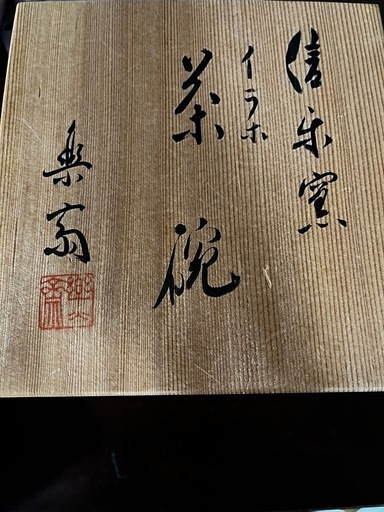 信乐窯
イラホ
茶碗
楽斎